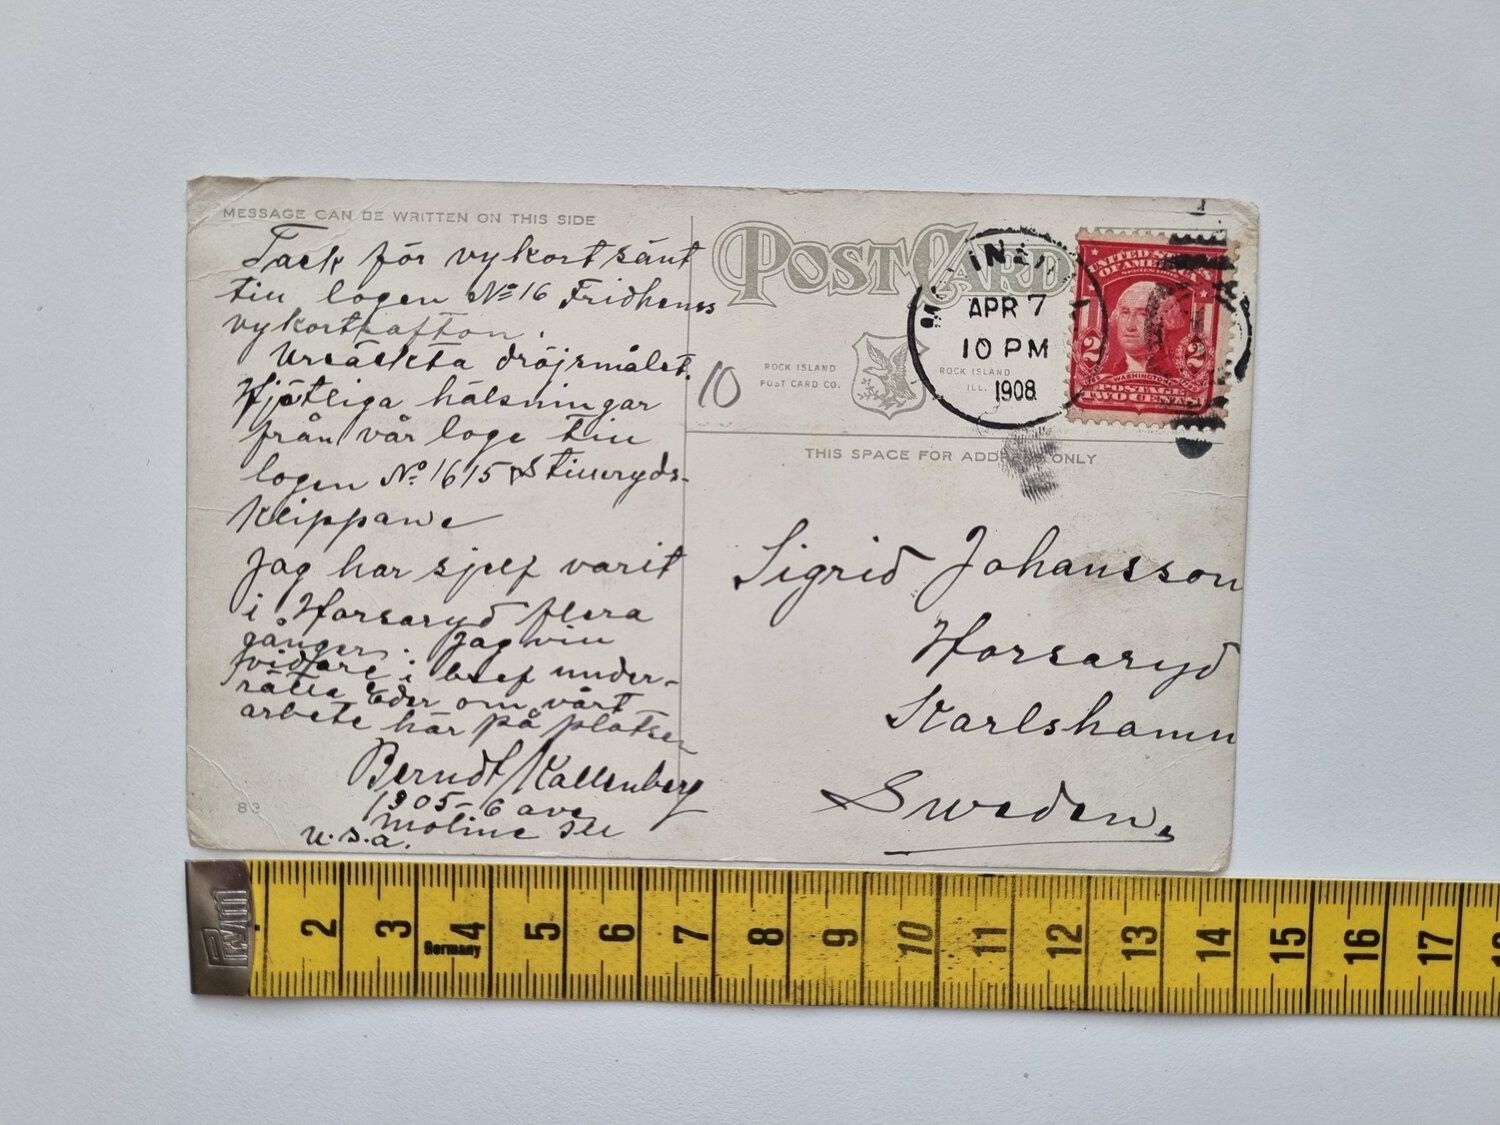 MESSAGE CAN BE WRITTEN ON THIS SIDE
Tack för vykort sänt
till logen No 16 Fridhems
vykortsafton.
Ursäckta dröjsmålet.
Hjätliga hälsningar
från vår loge till
logen No. 1615 Stilleryds-
klippane
Jag har sjelf varit
i Horsaryd flera
gånger. Jag vill
vidare i bref under-
rätta Eder om vårt
arbete här på platsen
Berndt Kallenberg
1905-6 ave
Moline Ill
U.S.A.
83
POST CARD
10
ROCK ISLAND
POST CARD CO.
ROCK ISLAND
ILL.
APR 7
10 PM
1908
UNITED STATES
OF AMERICA
SERIES 1902
2 2
WASHINGTON
POSTAGE
TWO CENTS
THIS SPACE FOR ADDRESS ONLY
Sigrid Johansson
Horsaryd
Karlshamn
Sweden.
Prym
2 3 4 5 6 7 8 9 10 11 12 13 14 15 16 17
Germany